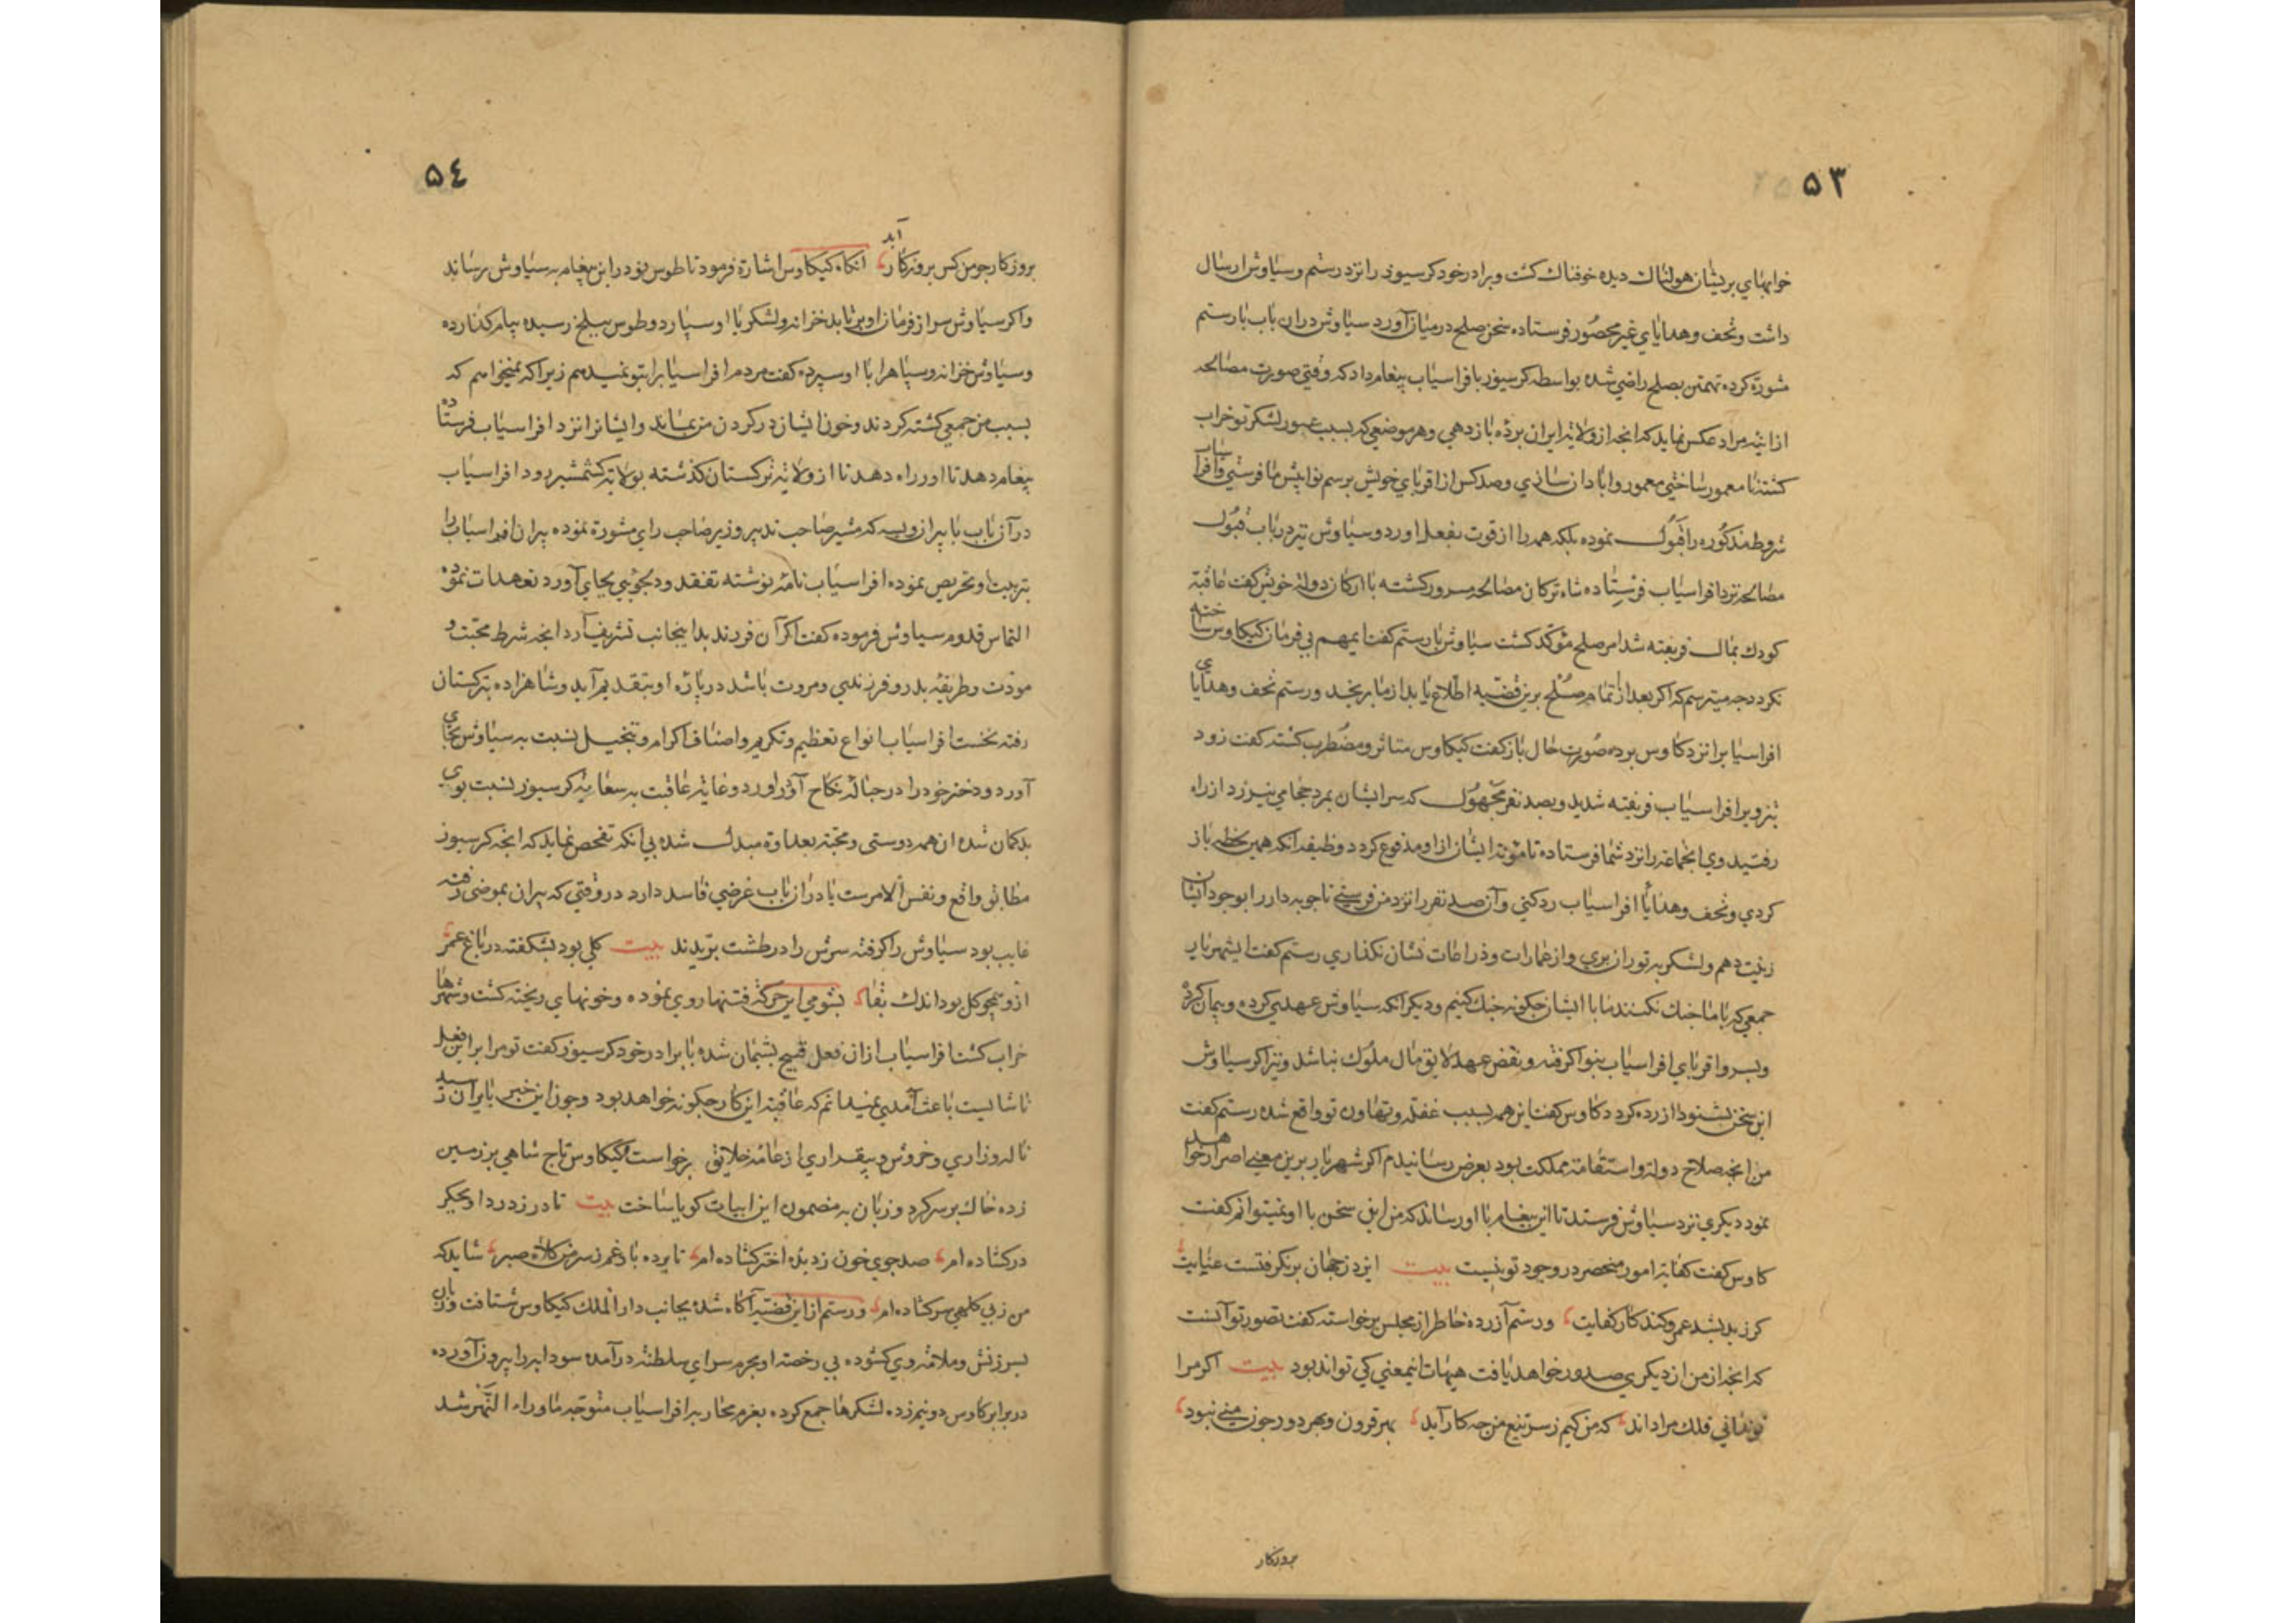 ۵۳
خوابهای پریشان هولناک دیده خوفناک کشت و برادر خود کرسیوز را نزد رستم و سیاوش ارسال
داشت و تحف و هدایای غیر محصور فرستاده سخن صلح درمیان آورد سیاوش دران باب با رستم
مشورة کرده تهمتن بصلح راضی شده بواسطه کرسیوز بافراسیاب پیغام داد که وقتی صورت مصالحه
از اینه مراد عکس نماید که انجه از ولایة ایران برده باز دهی و هر موضعی که بسبب عبور لشکر تو خراب
کشته نا معمور ساختی معمور و ابادان سازی و صد کس از اقربای خویش برسم نوا پیش ما فرستی و افراسیاب
شروط مذکوره را قبول نموده بلکه همه را از قوت بفعل اورد و سیاوش نیز در باب قبول
مصالحه نزد افراسیاب فرستاده شاه ترکان مصالحه مسرور کشته با ارکان دولة خویش کفت عاقبة
کودک بمال فریفته شد امر صلح مؤکد کشت سیاوش با رستم کفت این مهم بی فرمان کیکاوس ساخته
نکردد جه میترسم که اکر بعد از تمام صلح برین قضیه اطلاع یابد از ما برنجد و رستم تحف و هدایای
افراسیاب را نزد کاوس برده صورت حال باز کفت کیکاوس متاثر و مضطرب کشته کفت زود
بتزویر افراسیاب فریفته شدید و بصد نفر مجهول که سر ایشان بمرد حجامی نیرزد از راه
رفتید وی انجماعة را نزد شما فرستاده تا مؤنة ایشان از او مدفوع کردد وظیفه انکه همین لحظه باز
کردی و تحف و هدایا افراسیاب رد کنی و آن صد نفر را نزد من فرستی تا جوبه دار را بوجود ایشان
زینت دهم و لشکر به توران بری و از عمارات و ذراعات نشان نکذاری رستم کفت ایشهریار
جمعی که با ما جنک نکنند ما با ایشان جکونه جنک کنیم و دیکر آنکه سیاوش عهدی کرده و پیمان کرده
و پسر و اقربای افراسیاب بنوا کرفته و نقض عهد لایق مال ملوک نباشد و نیز اکر سیاوش
این سخن بشنود ازرده کردد کاوس کفت این همه بسبب غفلة و تهاون تو واقع شده رستم کفت
من انجه صلاح دولة و استقامة مملکت بود بعرض رسانیدم اکر شهریار برین معنی اصرار خواهد
نمود دیکری نزد سیاوش فرستد تا این پیغام با او رساند که من این سخن با او نمیتوانم کفت
کاوس کفت کفایة امور منحصر در وجود تو نیست بیت ایزد ز جهان برنکرفتست عنایت
کر زید بشد عمرو کند کار کفایت و رستم آزرده خاطر از مجلس برخواسته کفت تصور تو آنست
که انجه از من از دیکری صدور خواهد یافت هیهات اینمعنی کی تواند بود بیت اکر مرا
تو ندانی فلک مرا داند که من کیم ز سر تیغ من جه کار آید بهر قرون و بهر دور جون منی نبود
بروزکار
۵٤
بروزکار جو من کس بروزکار آید انکاه کیکاوس اشارة فرمود تا طوس نوذر این پیغام به سیاوش رساند
و اکر سیاوش سر از فرمان او برتابد خزانه و لشکر با او سپارد و طوس ببلخ رسیده پیام کذارده
و سیاوش خزانه و سپاه را با او سپرده کفت مردم افراسیاب را بتو نمیدهم زیرا که نمیخواهم که
بسبب من جمعی کشته کردند و خون ایشان در کردن من بماند و ایشانرا نزد افراسیاب فرستاده
پیغام دهد تا او راه دهد تا از ولایة ترکستان کذشته بولایة کشمشیر رود افراسیاب
در آن باب با پیران ویسه که مشیر صاحب تدبیر و زیر صاحب رای مشورة نموده پیران افراسیاب را
بتربیت و تحریص نموده افراسیاب نامه نوشته تفقد و دلجویی بجای آورد تعهدات نموده
التماس قدوم سیاوش فرموده کفت اکر آن فرزند بدا ینجانب تشریف آرد انجه شرط محبت و
مودت و طریقه پدر و فرزندی و مروت باشد در باره او بتقدیم آید و شاهزاده بترکستان
رفته نخست افراسیاب انواع تعظیم و تکریم و اصناف اکرام و تبجیل نسبت به سیاوش بجای
آورد و دختر خود را در حباله نکاح آؤراورد و عایة عاقبت به سعایة کرسیوز نسبت بوی
بدکمان شده ان همه دوستی و محبة بعداوة مبدل شده بی انکه تفحص نماید که انجه کرسیوز
مطابق واقع و نفس الامرست یا در ان باب غرضی فاسد دارد در وقتی که پیران بموضی رفته
غایب بود سیاوش را کرفته سرش را در طشت بریدند بیت کلی بود بشکفته در باغ عمر
ازو همچو کل بود اندک بقا بشومی این حرکة فتنها روی نموده و خونهای ریخته کشت و شهرها
خراب کشت افراسیاب از ان فعل قبیح پشیمان شده با برادر خود کرسیوز کفت تو مرا برین فعل
ناشایست باعث آمدی نمیدانم که عاقبة این کار جکونه خواهد بود و جون این خبر بایران رسید
ناله و زاری و خروش و بیقراری از عامه خلایق برخواست کیکاوس تاج شاهی بر زمین
زده خاک بر سر کرد و زبان به مضمون این ابیات کویا ساخت بیت تا در ز درد او بجکر
درکشاده ام صد جوی خون ز دیده اختر کشاده ام تا برده باد غم ز سر من کلاه صبر شاید که
من ز بی کلهی سر کشاده ام و رستم از این قضیه آکاه شده بجانب دار الملک کیکاوس شتافت و زبان
بسرزنش و ملامة وی کشوده بی رخصة او بحرم سرای سلطنة درآمده سودابه را بیرون آورده
در برابر کاوس دو نیم زد و لشکرها جمع کرده بعزم محاربه افراسیاب متوجه ماوراء النهر شد